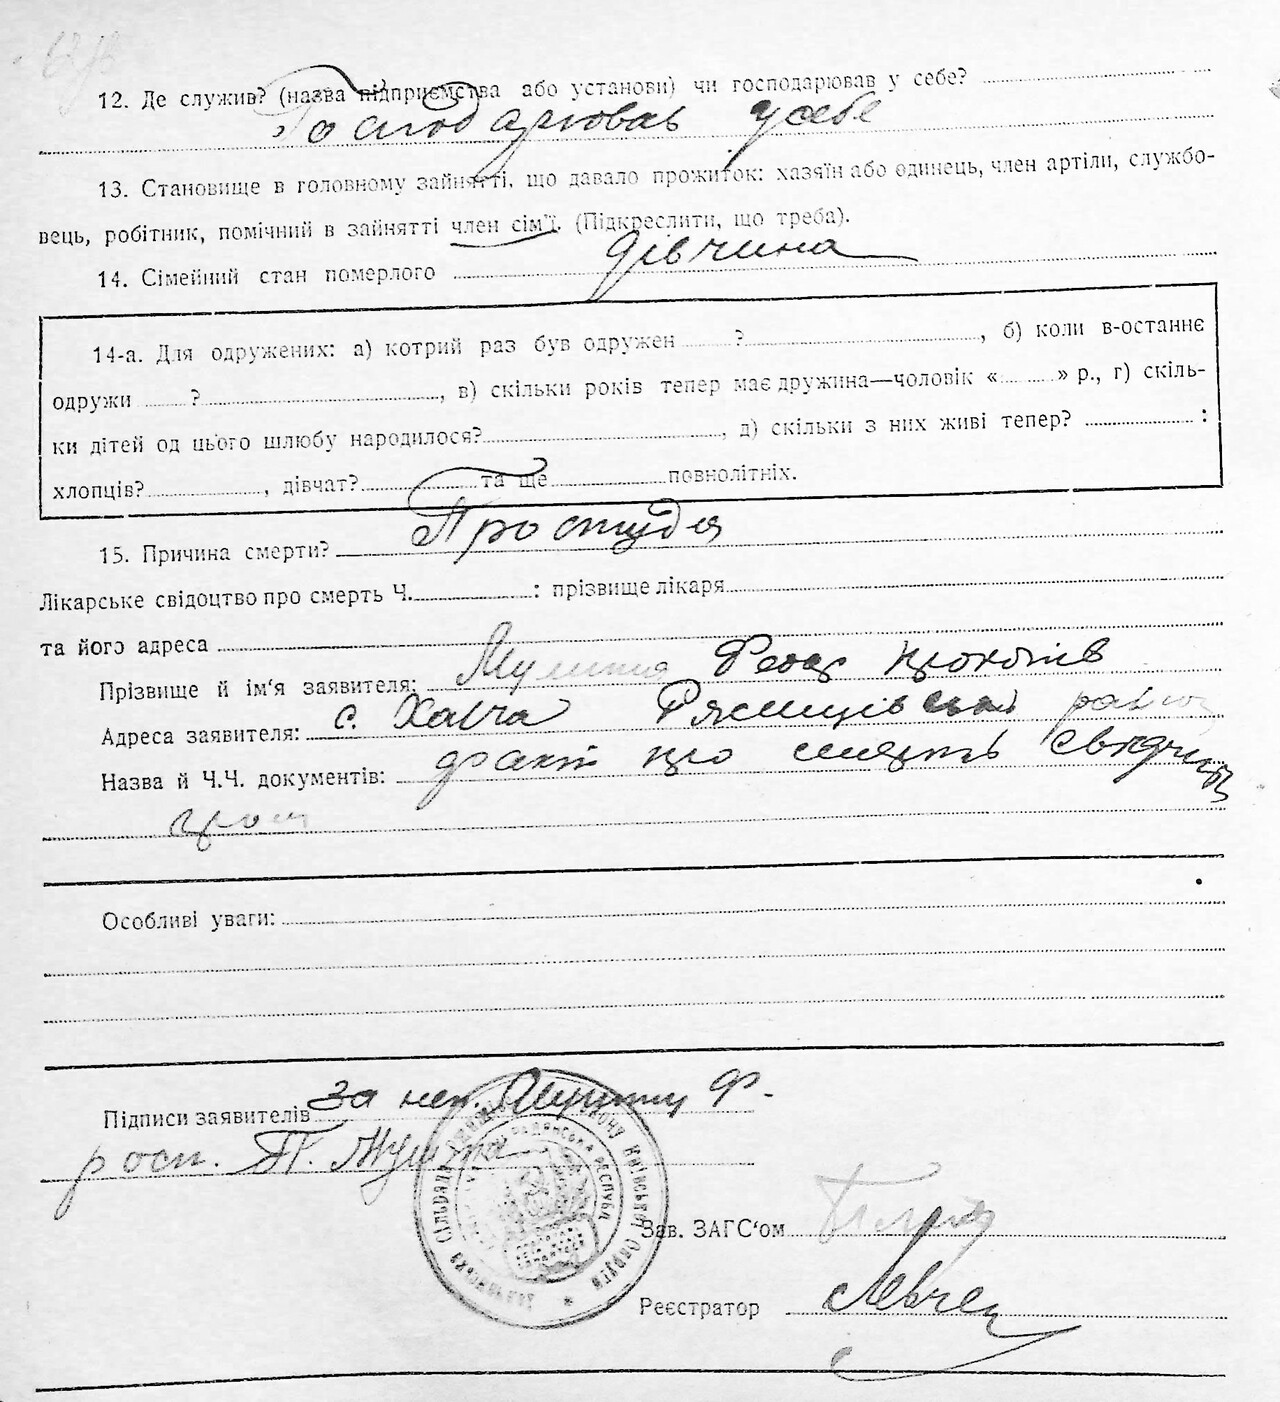 12. Де служив? (назва підприємства або установи) чи господарював у себе?
Господарював у себе
13. Становище в головному зайнятті, що давало прожиток: хазяїн або одинець, член артіли, службо-
вець, робітник, помічний в зайнятті член сім'ї. (Підкреслити, що треба).
14. Сімейний стан померлого дівчина
14-а. Для одружених: а) котрий раз був одружен ? , б) коли в-останнє
одружи ? , в) скільки років тепер має дружина—чоловік « » р., г) скіль-
ки дітей од цього шлюбу народилося? , д) скільки з них живі тепер? :
хлопців? , дівчат? та ще повнолітніх.
15. Причина смерти? Простуда
Лікарське свідоцтво про смерть Ч. : прізвище лікаря
та його адреса
Прізвище й ім'я заявителя:
Адреса заявителя: с.
Назва й Ч.Ч. документів: факт про смерть
Особливі уваги:
Підписи заявителів за неп. Ф.
росп. П.
Зав. ЗАГС'ом
Реєстратор